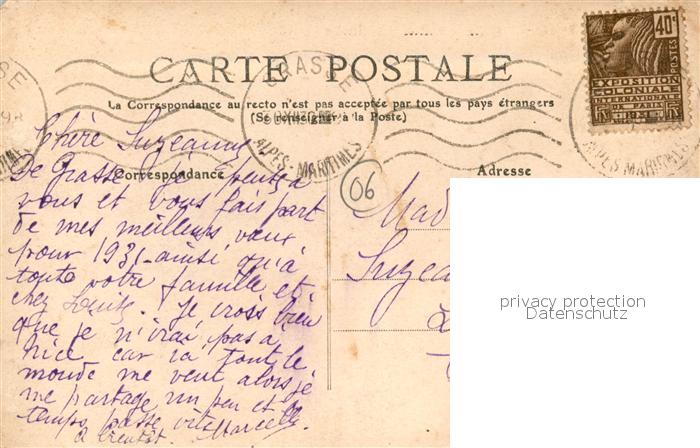 CARTE POSTALE
La Correspondance au recto n'est pas acceptée par tous les pays étrangers
(Se renseigner à la Poste)
Correspondance
Adresse
GRASSE
ALPES-MARITIMES
40c
POSTES
EXPOSITION
COLONIALE
INTERNATIONALE
PARIS
1931
ALPES MARITIMES
06
Chère Suzeanne
De Grasse je pense à
vous et vous fais part
de mes meilleurs vœux
pour 1931 ainsi qu'à
toute votre famille et
chez
je crois bien
que je n'irai pas à
Nice car la tout le
monde me veut alors je
me partage un peu et le
temps passe vite
à bientôt. Marcelle
Mad
Suzea
privacy protection
Datenschutz